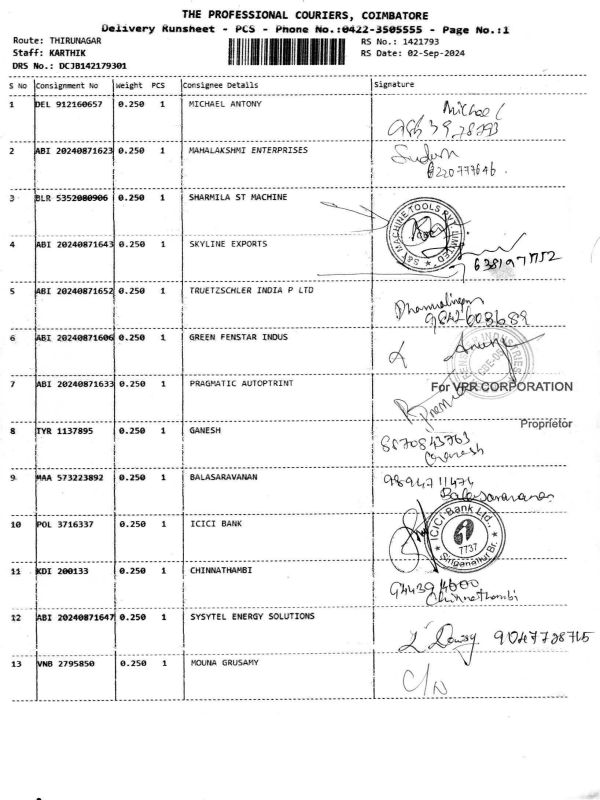 THE PROFESSIONAL COURIERS, COIMBATORE
Delivery Runsheet - PCS - Phone No.:0422-3505555 - Page No.:1
Route: THIRUNAGAR RS No.: 1421793
Staff: KARTHIK RS Date: 02-Sep-2024
DRS No.: DCJB142179301
S No Consignment No Weight PCS Consignee Details Signature
1 DEL 912160657 0.250 1 MICHAEL ANTONY
2 ABI 20240871623 0.250 1 MAHALAKSHMI ENTERPRISES
3 BLR 5352080906 0.250 1 SHARMILA ST MACHINE
S&Y MACHINE TOOLS PVT. LIMITED
4 ABI 20240871643 0.250 1 SKYLINE EXPORTS
5 ABI 20240871652 0.250 1 TRUETZSCHLER INDIA P LTD
9842603689
6 ABI 20240871606 0.250 1 GREEN FENSTAR INDUS
7 ABI 20240871633 0.250 1 PRAGMATIC AUTOPTRINT
For VPR CORPORATION
Proprietor
8 TYR 1137895 0.250 1 GANESH
8870843763
Ganesh
9 MAA 573223892 0.250 1 BALASARAVANAN
9894711474
Balasaravanan
10 POL 3716337 0.250 1 ICICI BANK
ICICI Bank Ltd.,
7737
Singanallur Br.
11 KDI 200133 0.250 1 CHINNATHAMBI
Chinnathambi
12 ABI 20240871647 0.250 1 SYSYTEL ENERGY SOLUTIONS
9047728715
13 VNB 2795850 0.250 1 MOUNA GRUSAMY
C/N